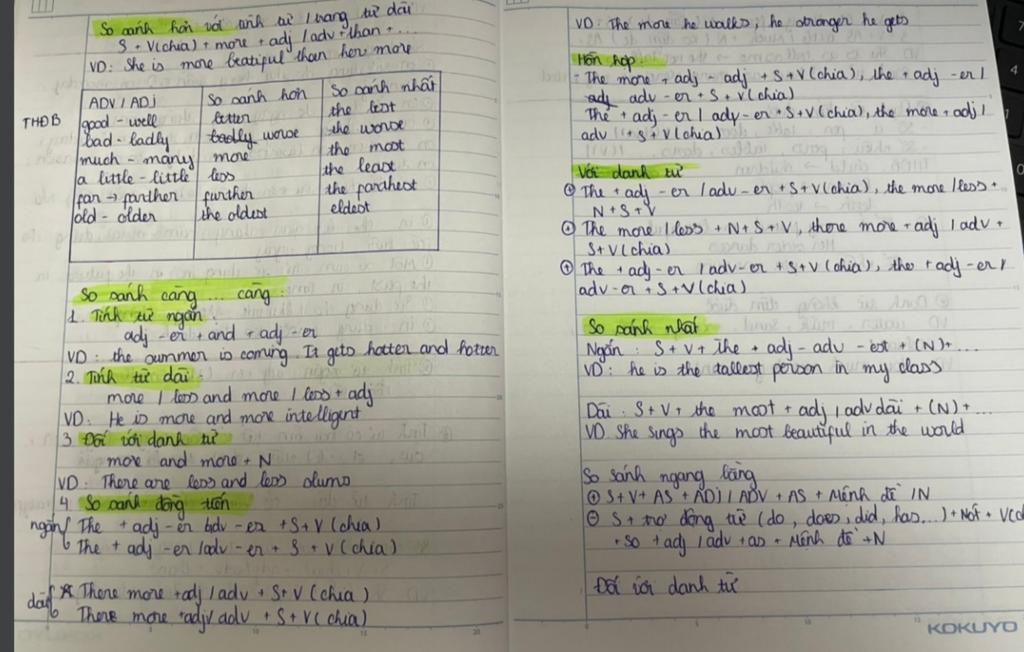 So sánh hơn với tính từ / trạng từ dài
S + V(chia) + more + adj / adv + than + ...
VD: She is more beatiful than her more
THĐB
ADV / ADJ
So sánh hơn
So sánh nhất
good - well
better
the best
bad - badly
badly worse
the worse
much - many
more
the most
a little - little
less
the least
far → farther
further
the farthest
old - older
the oldest
eldest
So sánh càng ... càng:
1. Tính từ ngắn.
adj - er + and + adj - er
VD: the summer is coming. It gets hotter and hotter
2. Tính từ dài:
more / less and more / less + adj
VD: He is more and more intelligent
3. Đối với danh từ
more and more + N
VD: There are less and less slums
4. So sánh đồng tiến
ngắn
The + adj - er / adv - er + S + V (chia)
The + adj - er / adv - er + S + V (chia)
dài
There more + adj / adv + S + V (chia)
There more + adj / adv + S + V (chia)
VD: The more he walks, he stronger he gets
Hỗn hợp:
- The more + adj - adj + S + V (chia), the + adj - er /
adj adv - er + S + V (chia)
The + adj - er / adv - er + S + V (chia), the more + adj /
adv + S + V (chia)
Với danh từ
⊕ The + adj - er / adv - er + S + V (chia), the more / less +
N + S + V
⊕ The more / less + N + S + V, there more + adj / adv +
S + V (chia)
⊕ The + adj - er / adv - er + S + V (chia), the + adj - er /
adv - er + S + V (chia)
So sánh nhất
Ngắn: S + V + The + adj - adv - est + (N) + ...
VD: he is the tallest person in my class
Dài: S + V + the most + adj / adv dài + (N) + ...
VD She sings the most beautiful in the world
So sánh ngang bằng
⊕ S + V + AS + ADJ / ADV + AS + Mệnh đề / N
⊖ S + trợ động từ (do, does, did, has...) + Not + V(
+ so + adj / adv + as + Mệnh đề + N
Đối với danh từ
KOKUYO